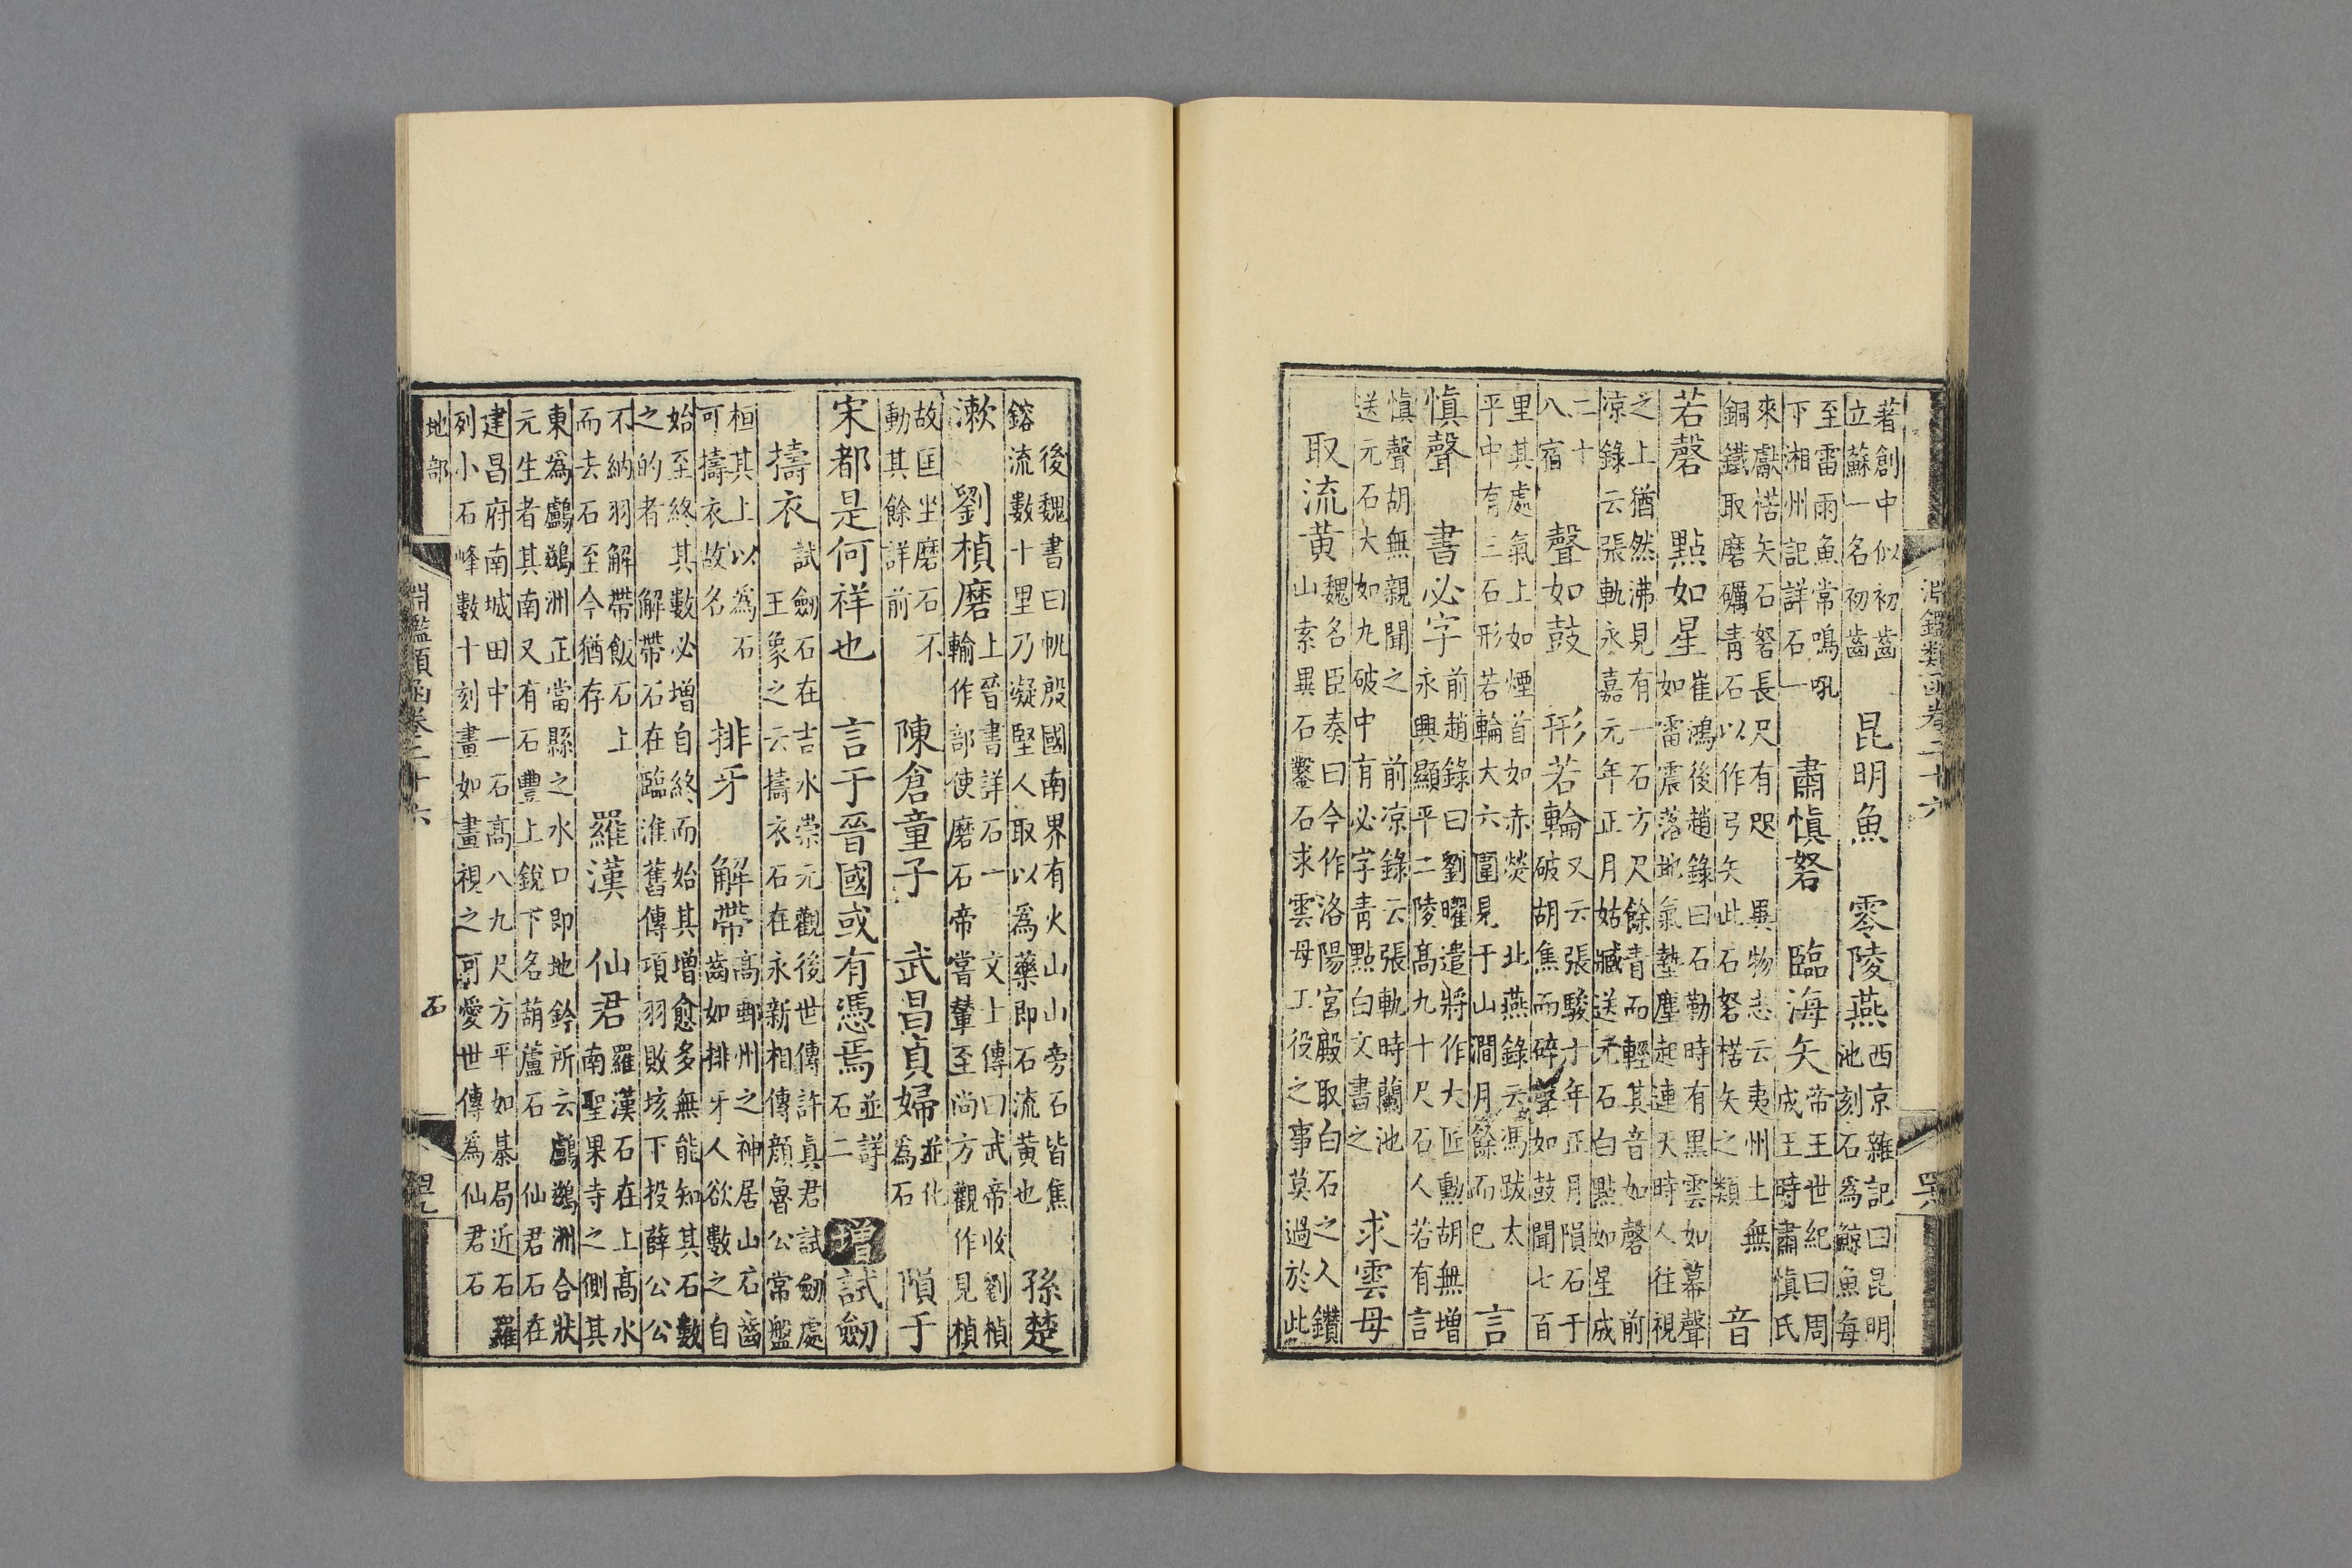 著創中似初齒
立蘇一名初齒
昆明魚　零陵燕
西京雜記曰昆明
池刻石為鯨魚每
至雷雨魚常鳴吼
下湘州記詳石一
肅愼砮　臨海矢
帝王世紀曰周
成王時肅慎氏
來獻楛矢石砮長尺有咫　異物志云夷州土無
銅鐵取磨礪青石以作弓矢此石砮楛矢之類
音
若磬　點如星
崔鴻後趙錄曰石勒時有黑雲如幕聲
如雷震落地氣塵起連天時人往視
之上猶然沸見有一石方尺餘青而輕其音如磬　前
凉錄云張軌永嘉元年正月姑臧送元石白點如星成
二十
八宿
聲如鼓　形若輪
又云張駿十年正月隕石于
破胡焦而碎聲如鼓聞七百
里其處氣上如煙首如赤熒　北燕錄云馮跋太
平中有三石形若輪大六圍見于山澗月餘而已
言
愼聲　書必字
前趙錄曰劉曜遣將作大匠勳胡無增
永興顯平二陵高九十尺石人若有言
慎聲胡無親聞之　前凉錄云張軌時蘭池
送元石大如九破中有必字青點白文書之
求雲母
取流黄
魏名臣奏曰今作洛陽宮殿取白石之人鑽
山索異石鑿石求雲母工役之事莫過於此
淵鑑類函卷二十六
後魏書曰帆殷國南界有火山山旁石皆焦
鎔流數十里乃凝堅人取以為藥即石流黄也
孫楚
漱　劉楨磨
上晉書詳石一　文士傳曰武帝收劉楨
輸作部使磨石帝嘗輦至尚方觀作見楨
故匡坐磨石不
動其餘詳前
陳倉童子　武昌貞婦
並化
為石
隕于
宋都是何祥也　言于晉國或有憑焉
並詳
石二
增試劒
擣衣
試劒石在吉水崇元觀後世傳許真君試劒處
王象之云擣衣石在永新相傳顏魯公常盤
桓其上以為石
可擣衣故名
排牙　解帶
高郵州之神居山石齒
齒如排牙人欲數之自
始至終其數必增自終而始其增愈多無能知其石數
之的者　解帶石在臨淮舊傳項羽敗垓下投薛公公
不納羽解帶飯石上
而去石至今猶存
羅漢　仙君
羅漢石在上高水
南聖果寺之側其
東為鸕鷀洲正當縣之水口即地鈐所云鸕鷀洲合狀
元生者其南又有石豐上銳下名葫蘆石　仙君石在
建昌府南城田中一石高八九尺方平如棊局近石羅
列小石峰數十刻畫如畫視之可愛世傳為仙君石
地部
石
淵鑑類函卷二十六